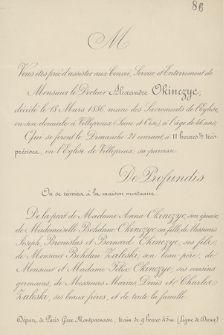 86
M
Vous êtes prié d'assister aux Convoi, Service et Enterrement de
Monsieur le Docteur Alexandre Okinczyc,
décédé le 18 Mars 1886, muni des Sacrements de l'Église,
en son domicile à Villepreux (Seine et Oise), à l'âge de 46 ans;
Qui se feront le Dimanche 21 courant, à 11 heures ½ très
précises, en l'Église de Villepreux, sa paroisse.
De Profundis
On se réunira à la maison mortuaire.
De la part de Madame Anna Okinczyc, son épouse,
de Mademoiselle Bohdane Okinczyc, sa fille, de Messieurs
Joseph, Bronislas et Bernard Okinczyc, ses fils,
de Monsieur Bohdan Zaleski, son beau père, de
Monsieur et Madame Félix Okinczyc, ses cousins
germains, de Messieurs Marius Denis et Charles
Zaleski, ses beaux frères, et de toute la famille.
Départ de Paris Gare Montparnasse, train de 9 heures